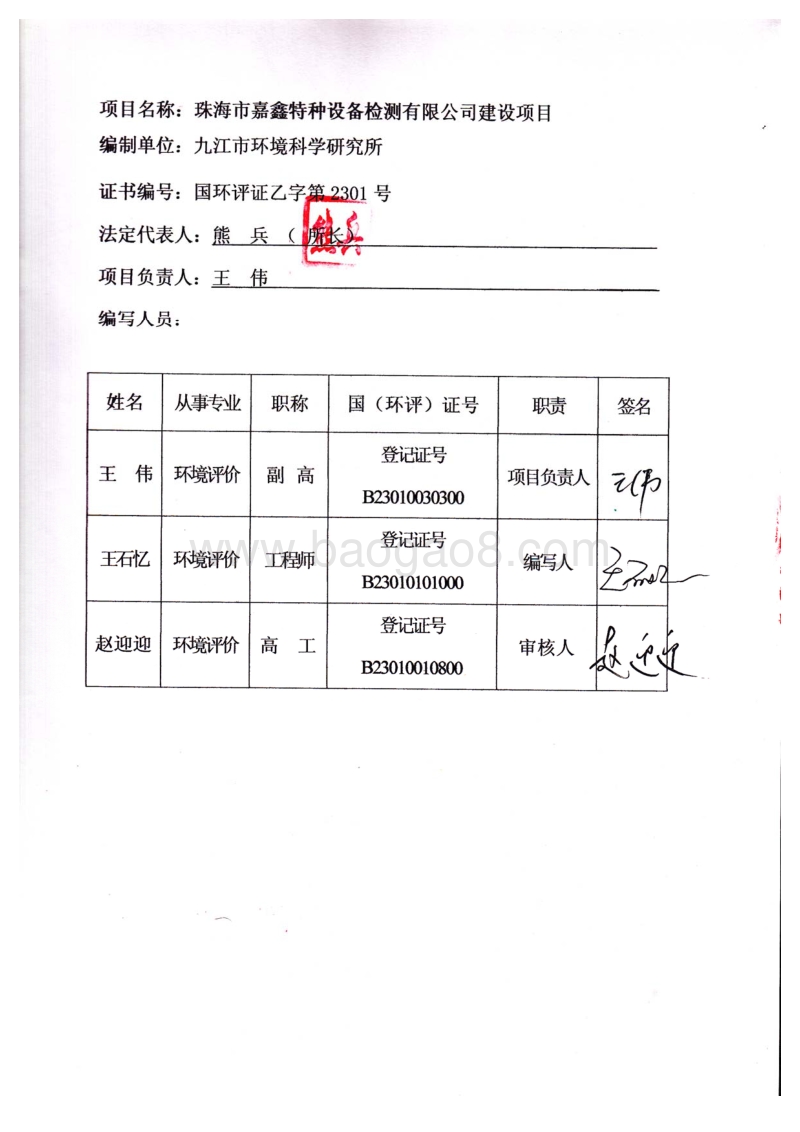 项目名称：珠海市嘉鑫特种设备检测有限公司建设项目
编制单位：九江市环境科学研究所
证书编号：国环评证乙字第 2301 号
熊兵
法定代表人：熊 兵（ 所长）
项目负责人：王 伟
编写人员：
姓名 从事专业 职称 国（环评）证号 职责 签名
王 伟 环境评价 副 高 登记证号 B23010030300 项目负责人 王伟
王石忆 环境评价 工程师 登记证号 B23010101000 编写人 王石忆
赵迎迎 环境评价 高 工 登记证号 B23010010800 审核人 赵迎迎
www.baogao8.com